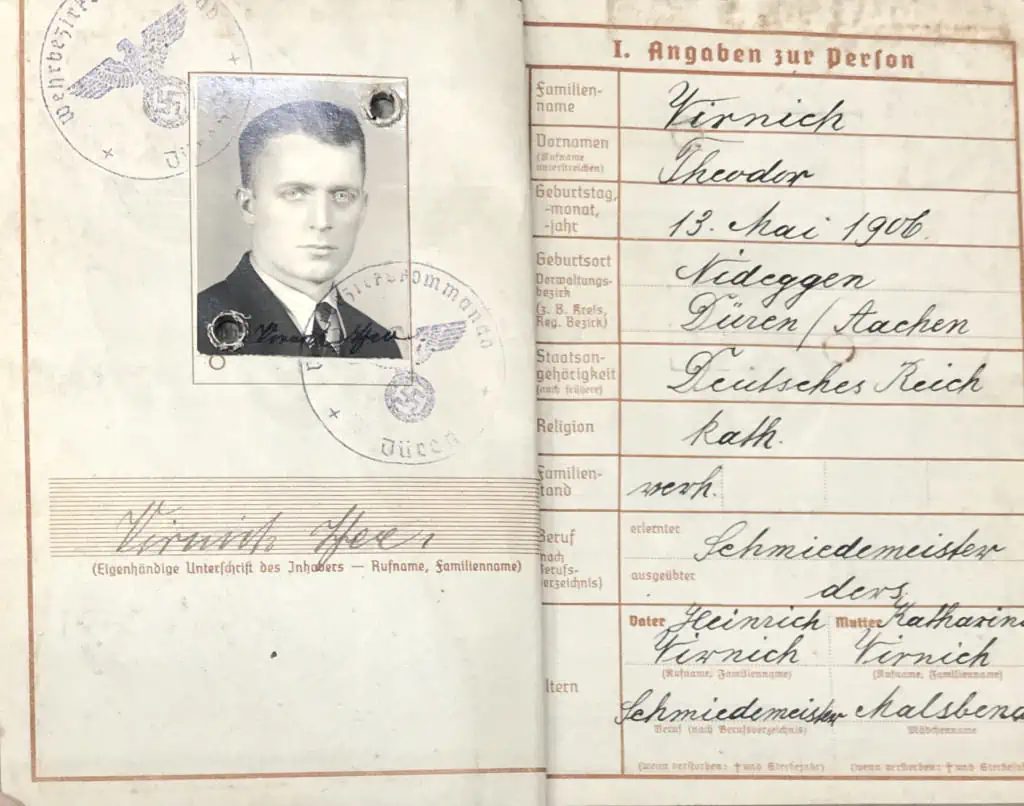 Wehrbezirkskommando
Dü
Wehrbezirkskommando
Düren
Virnich Theo
Virnich Theo
(Eigenhändige Unterschrift des Inhabers — Rufname, Familienname)
3
I. Angaben zur Person
Familien-
name
Virnich
Vornamen
(Rufname
unterstreichen)
Theodor
Geburtstag,
-monat,
-jahr
13. Mai 1906.
Geburtsort
Verwaltungs-
bezirk
(z. B. Kreis,
Reg. Bezirk)
Nideggen
Düren / Aachen
Staatsan-
gehörigkeit
(auch frühere)
Deutsches Reich
Religion
kath.
Familien-
stand
verh.
Beruf
(nach
Berufs-
verzeichnis)
erlernter
Schmiedemeister
ausgeübter
ders.
Eltern
Vater Heinrich
Virnich
(Rufname, Familienname)
Schmiedemeister
Beruf (nach Berufsverzeichnis)
(wenn verstorben: † und Sterbejahr)
Mutter Katharina
Virnich
(Rufname, Familienname)
Mädchenname
(wenn verstorben: † und Sterbejahr)